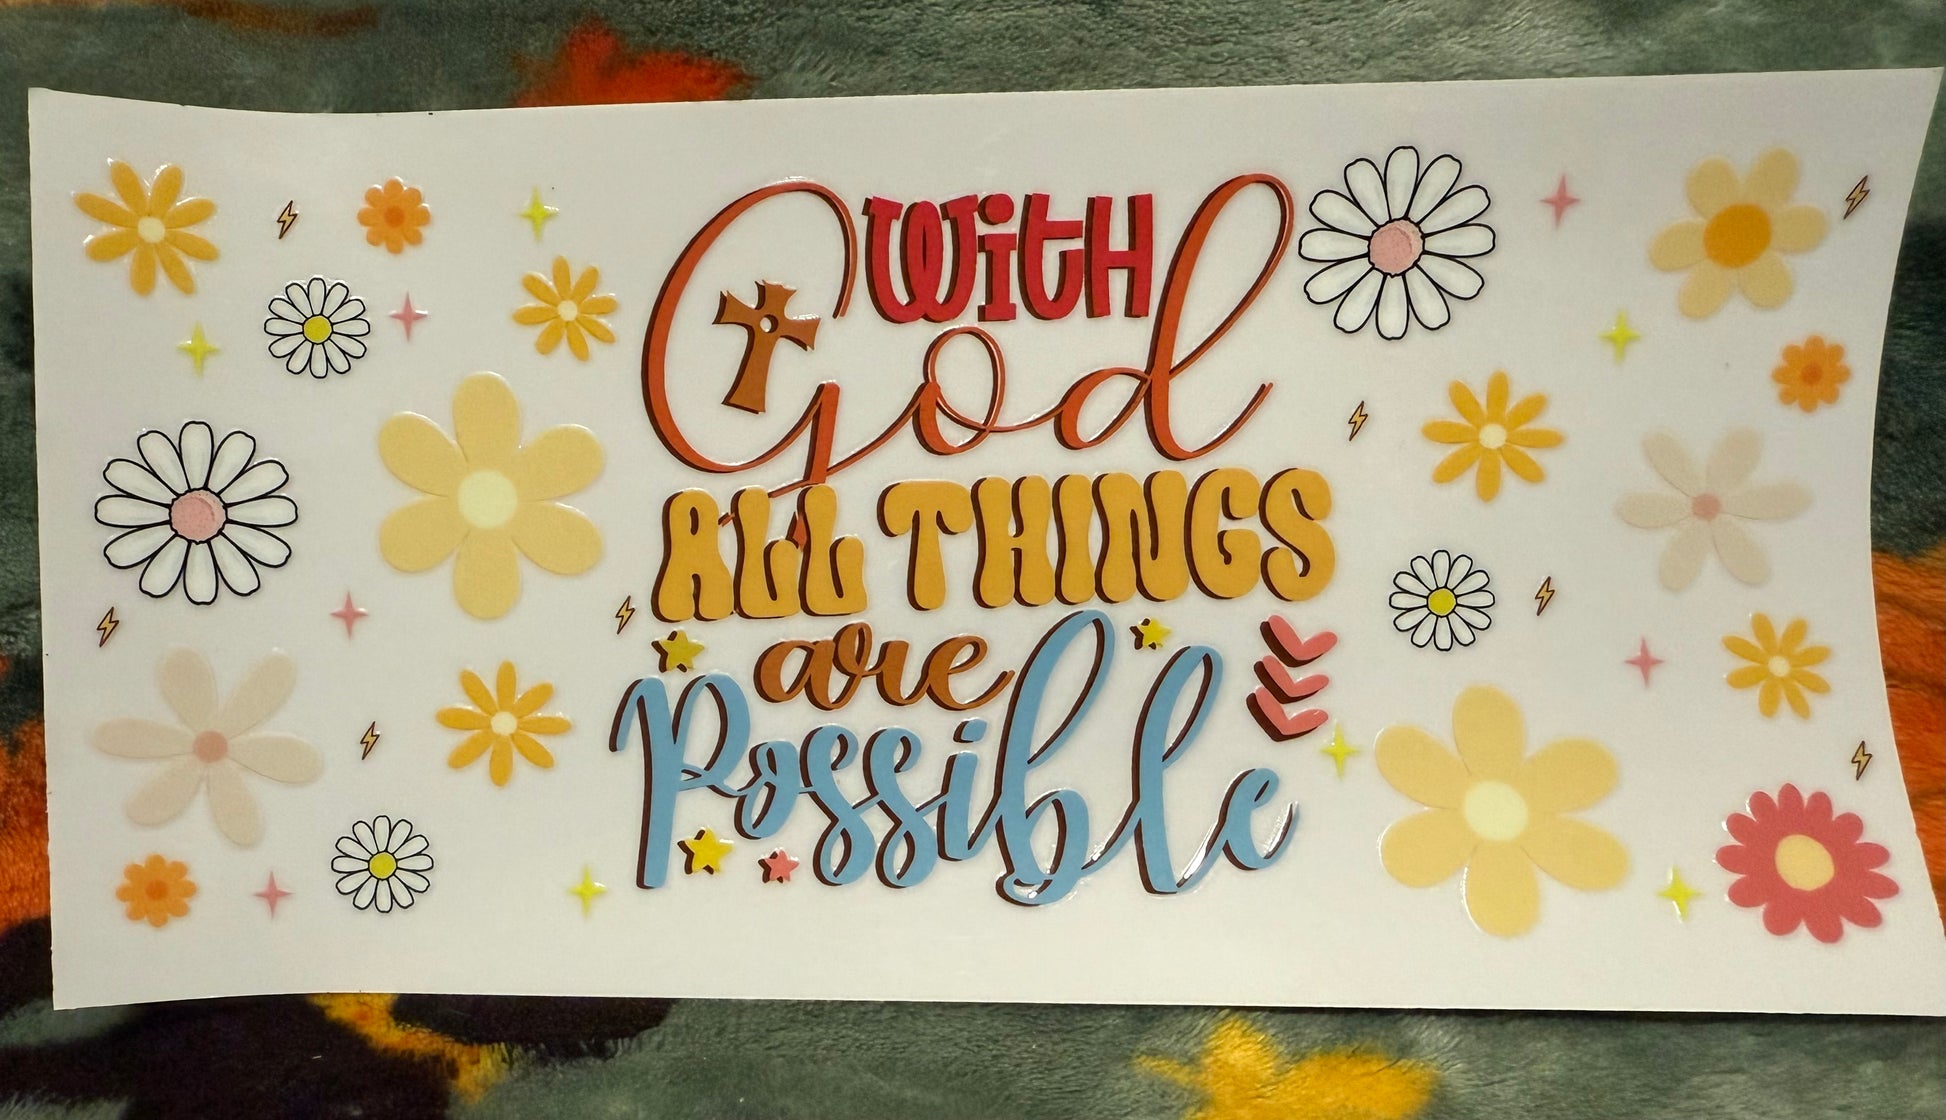 With
God
ALL THINGS
are
Possible